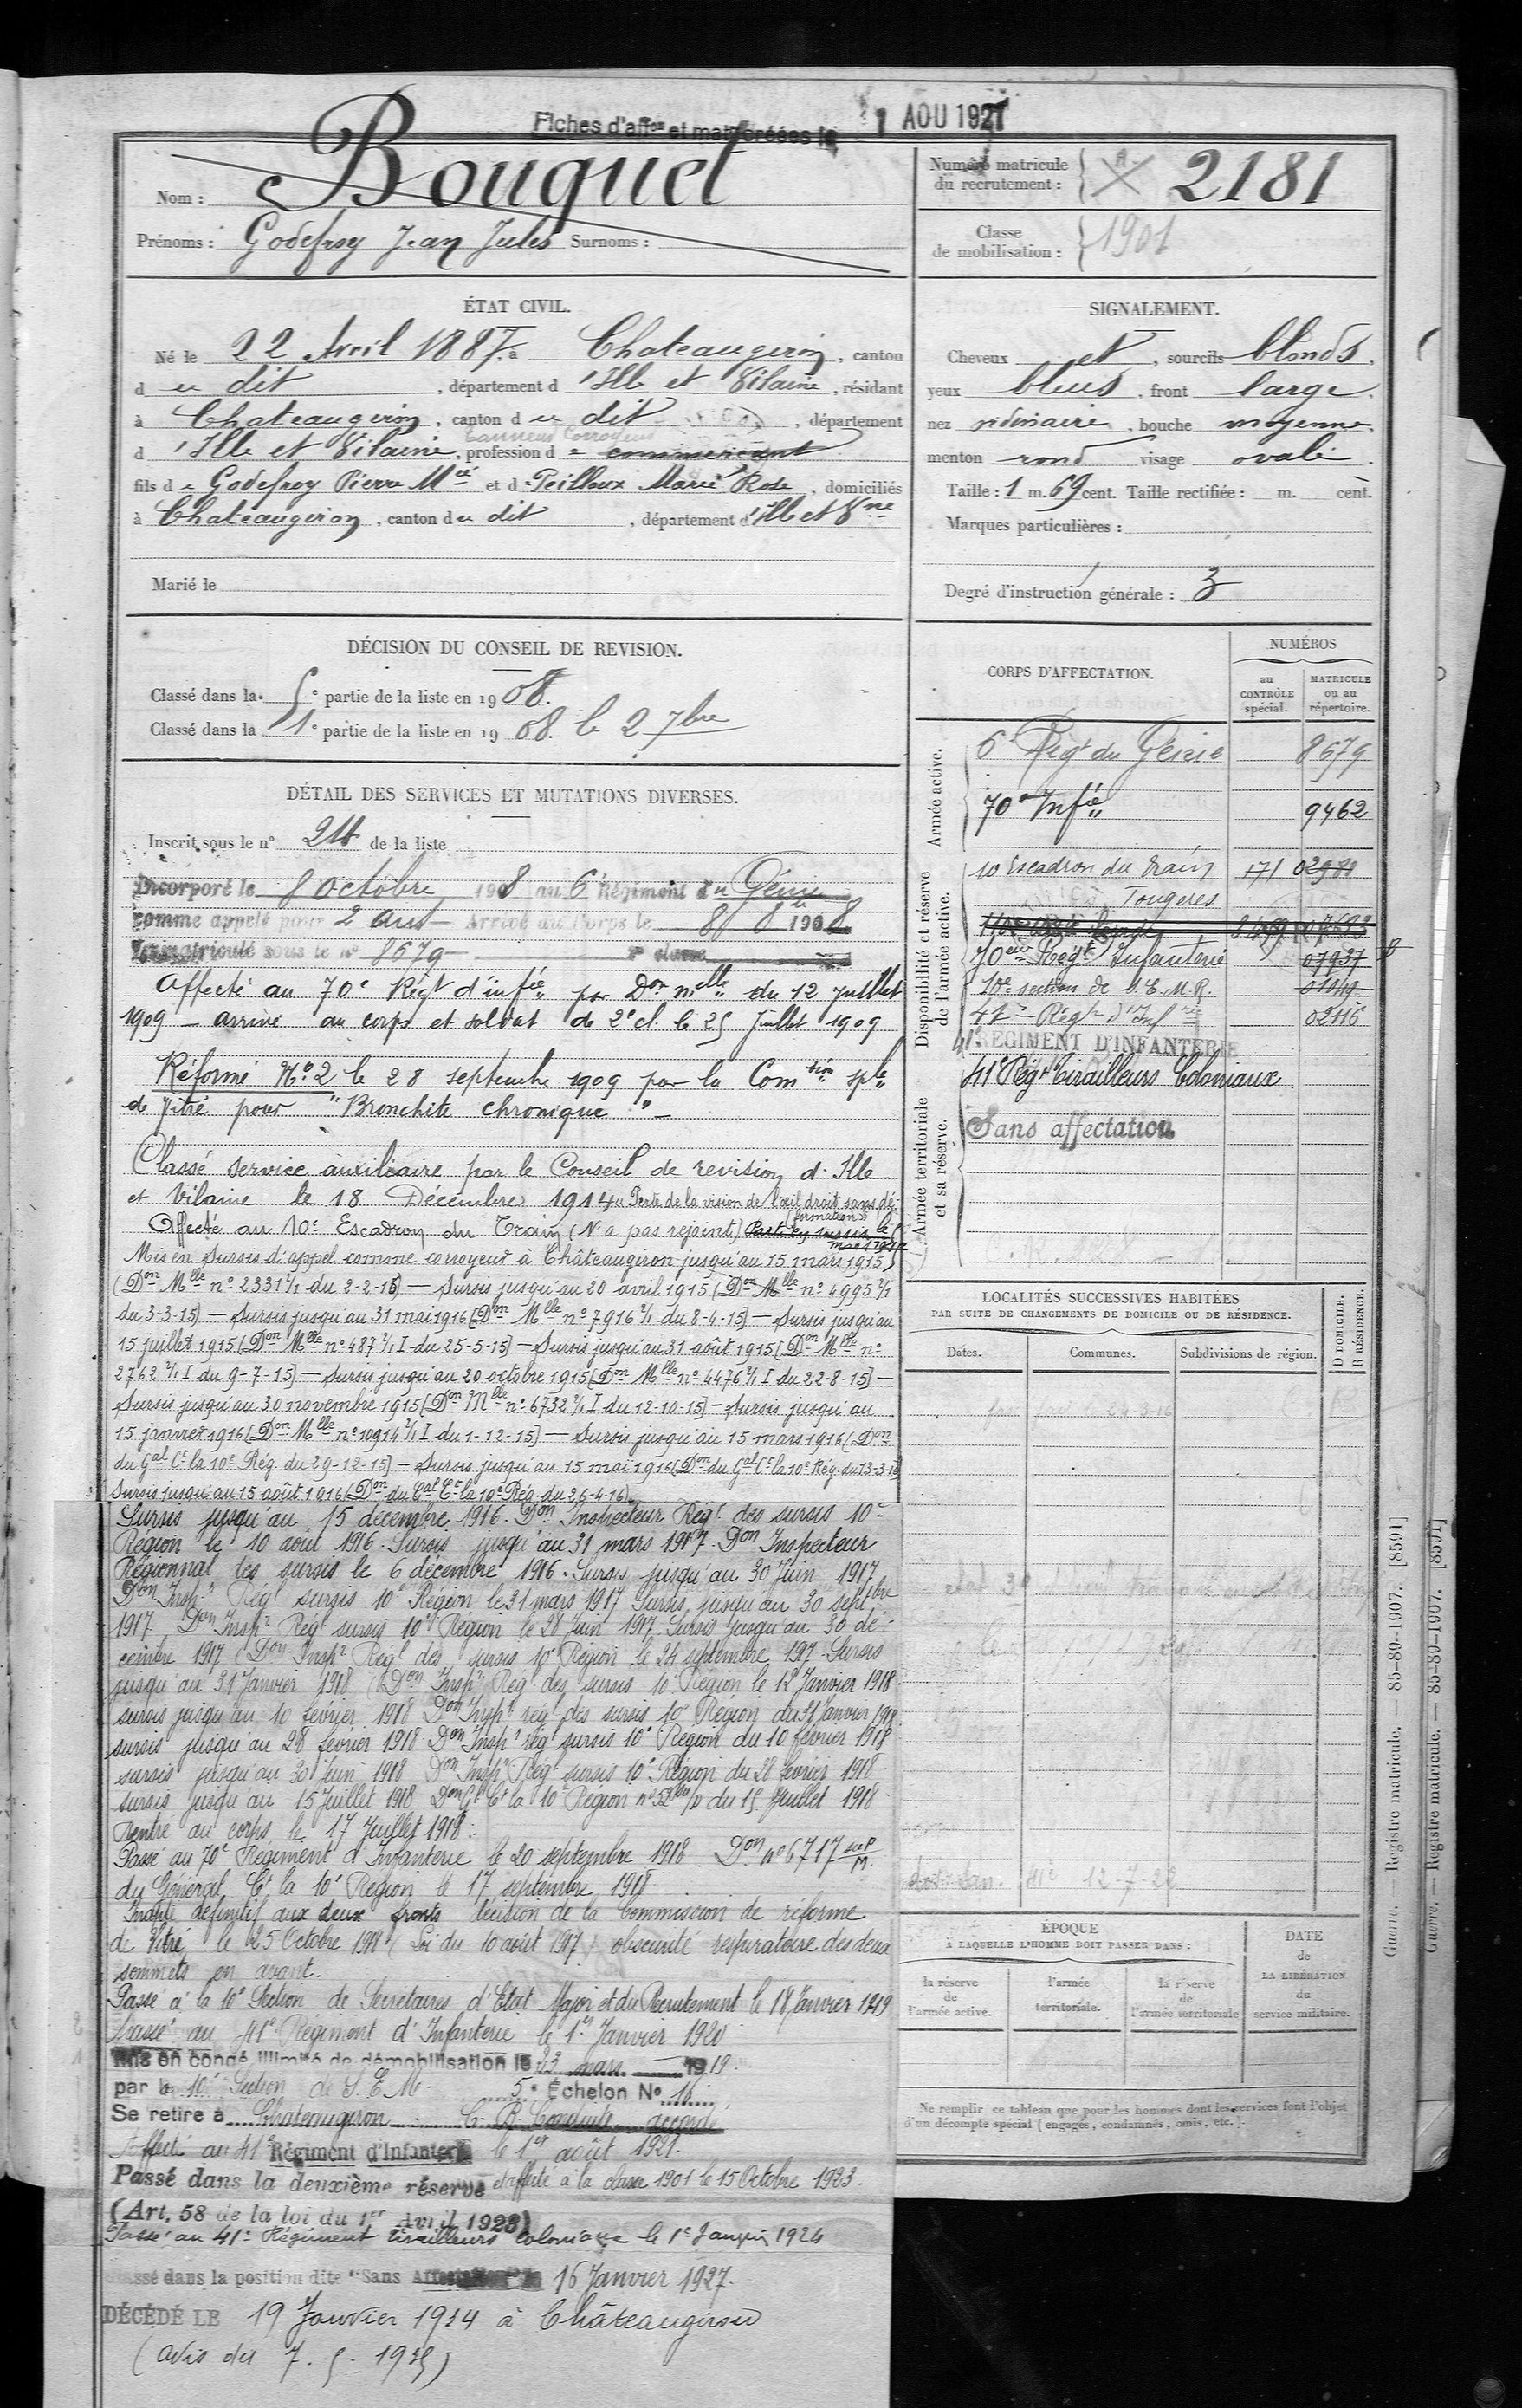 Fiches d'aff^on et mat créées le 1 AOU 1927
Nom : Bouquet
Prénoms : Godefroy Jean Jules Surnoms :
Numéro matricule du recrutement : 2181
Classe de mobilisation : 1901
ÉTAT CIVIL.
Né le 22 Avril 1887, à Chateaugiron, canton
du dit, département d'Ille et Vilaine, résidant
à Chateaugiron, canton du dit, département
d'Ille et Vilaine, profession de commerçant
Tanneur Corroyeur
fils de Godefroy Pierre M^ie et de Peilloux Marie Rose, domiciliés
à Chateaugiron, canton du dit, département d'Ille et V^ne
Marié le
SIGNALEMENT.
Cheveux et, sourcils blonds,
yeux bleus, front large,
nez ordinaire, bouche moyenne,
menton rond visage ovale.
Taille : 1 m. 69 cent. Taille rectifiée : m. cent.
Marques particulières :
Degré d'instruction générale : 3
DÉCISION DU CONSEIL DE REVISION.
Classé dans la 5e partie de la liste en 1908.
Classé dans la 1e partie de la liste en 1908. le 2 7bre
DÉTAIL DES SERVICES ET MUTATIONS DIVERSES.
Inscrit sous le n° 24 de la liste
Incorporé le 8 octobre 1908 au 6e Régiment du Génie
comme appelé pour 2 ans Arrivé au Corps le 8 8bre 1908
Immatriculé sous le n° 8679 2e classe
Affecté au 70e Régt d'infie par Don mlle du 12 Juillet
1909 – arrivé au corps et soldat de 2e cl. le 25 Juillet 1909
Réformé N° 2 le 28 septembre 1909 par la Comtion sple
de Vitré pour "Bronchite chronique" –
Classé service auxiliaire par le Conseil de revision d'Ille
et Vilaine le 18 Décembre 1914 "Perte de la vision de l'œil droit sans dé-
formation"
Affecté au 10e Escadron du Train (N'a pas rejoint)
Mis en Sursis d'appel comme corroyeur à Châteaugiron jusqu'au 15 mars 1915
(Don Mlle n° 2331 2/1 du 2-2-15) — Sursis jusqu'au 20 avril 1915 (Don Mlle n° 4995 2/1
du 3-3-15) — Sursis jusqu'au 31 mai 1916 (Don Mlle n° 7916 2/1 du 8-4-15) — Sursis jusqu'au
15 juillet 1915 (Don Mlle n° 487 2/1 I du 25-5-15) — Sursis jusqu'au 31 août 1915 (Don Mlle n°
2762 2/1 I du 9-7-15) — Sursis jusqu'au 20 octobre 1915 (Don Mlle n° 4476 2/1 I du 22-8-15) —
Sursis jusqu'au 30 novembre 1915 (Don Mlle n° 6732 2/1 I du 12-10-15) — Sursis jusqu'au
15 janvier 1916 (Don Mlle n° 10914 2/1 I du 1-12-15) — Sursis jusqu'au 15 mars 1916 (Don
du Gal Ct la 10e Rég. du 29-12-15) — Sursis jusqu'au 15 mai 1916 (Don du Gal Ct la 10e Rég. du 13-3-16)
Sursis jusqu'au 15 août 1916 (Don du Gal Ct la 10e Rég. du 26-4-16)
Sursis jusqu'au 15 décembre 1916. Don Inspecteur Régl des sursis 10e
Région le 10 août 1916. Sursis jusqu'au 31 mars 1917. Don Inspecteur
Régionnal des sursis le 6 décembre 1916. Sursis jusqu'au 30 Juin 1917
Don Inspr Régl sursis 10e Région le 31 mars 1917 Sursis jusqu'au 30 septbre
1917 Don Inspr Régl sursis 10e Région le 28 Juin 1917. Sursis jusqu'au 30 dé-
cembre 1917 (Don Inspr Régl des sursis 10e Région le 24 septembre 1917 Sursis
jusqu'au 31 Janvier 1918 (Don Inspr Régl des sursis 10e Région le 12 Janvier 1918
sursis jusqu'au 10 février 1918 Don Inspr rég des sursis 10e Région du 31 Janvier 1918
sursis jusqu'au 28 février 1918 Don Inspr rég sursis 10e Région du 10 février 1918
sursis jusqu'au 30 Juin 1918 Don Inspr Régl sursis 10e Région du 28 février 1918
sursis jusqu'au 15 Juillet 1918 Don Gl Ct la 10e Région n° du 15 Juillet 1918
Rentré au corps le 17 Juillet 1918.
Passé au 70e Régiment d'Infanterie le 20 septembre 1918 Don n° 6717
du Général Ct la 10e Région le 17 septembre 1918
Inapte définitif aux deux fronts décision de la Commission de réforme
de Vitré le 25 Octobre 1918 (Loi du 10 août 1917) obscurité respiratoire des deux
sommets en avant.
Passé à la 10e Section de Secrétaires d'Etat Major et du Recrutement le 18 Janvier 1919
Passé au 41e Régiment d'Infanterie le 1er Janvier 1920
Mis en congé illimité de démobilisation le 23 mars 1919.
par la 10e Section de S.E.M. 5e Échelon No 16
Se retire à Chateaugiron C. B. Conduite accordé
Affecté au 41e Régiment d'Infanterie le 1er août 1921.
Passé dans la deuxième réserve et affecté à la classe 1901 le 15 Octobre 1923.
(Art. 58 de la loi du 1er Avril 1923)
Passé au 41e Régiment tirailleurs coloniaux le 1er Janvier 1924
Classé dans la position dite "Sans Affectation" le 16 Janvier 1927.
DÉCÉDÉ LE 19 Janvier 1934 à Châteaugiron
(avis du 7. 5. 1935)
CORPS D'AFFECTATION.
NUMÉROS
au CONTRÔLE spécial.
MATRICULE ou au répertoire.
Armée active.
6e Régt du Génie 8679
70e Infie 9462
Disponibilité et réserve de l'armée active.
10 Escadron du train 171 02981
Fougeres
70eme Régt Infanterie 07937
10e section de S.E.M.R. 01049
41e Régt d'Infrie 02116
41e REGIMENT D'INFANTERIE
41e Régt Tirailleurs Coloniaux
Armée territoriale et sa réserve.
Sans affectation
LOCALITÉS SUCCESSIVES HABITÉES
PAR SUITE DE CHANGEMENTS DE DOMICILE OU DE RÉSIDENCE.
D DOMICILE.
R RÉSIDENCE.
Dates. Communes. Subdivisions de région.
41e 12-7-22
ÉPOQUE
À LAQUELLE L'HOMME DOIT PASSER DANS :
la réserve de l'armée active.
l'armée territoriale.
la réserve de l'armée territoriale
DATE de LA LIBÉRATION du service militaire.
Ne remplir ce tableau que pour les hommes dont les services font l'objet
d'un décompte spécial (engagés, condamnés, omis, etc.).
Guerre. — Registre matricule. — 85-89-1907. [8591]
Guerre. — Registre matricule. — 85-89-1907. [8591]